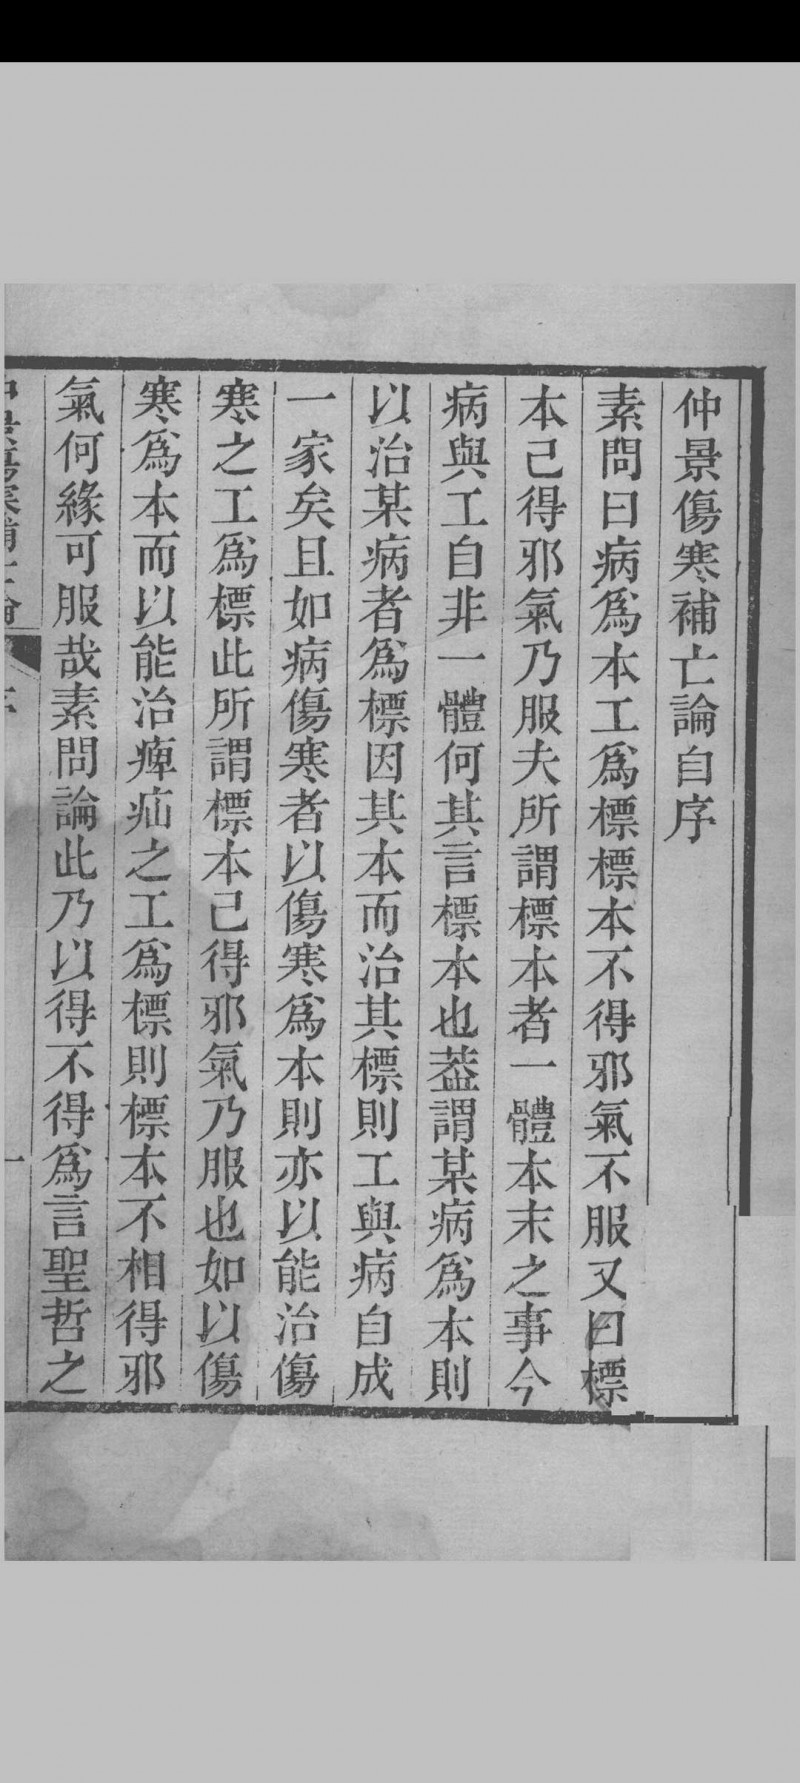 仲景傷寒補亡論自序
素問曰病爲本工爲標標本不得邪氣不服又曰標
本己得邪氣乃服夫所謂標本者一體本末之事今
病與工自非一體何其言標本也葢謂某病爲本則
以治某病者爲標因其本而治其標則工與病自成
一家矣且如病傷寒者以傷寒爲本則亦以能治傷
寒之工爲標此所謂標本己得邪氣乃服也如以傷
寒爲本而以能治痺疝之工爲標則標本不相得邪
氣何緣可服哉素問論此乃以得不得爲言聖哲之
仲景傷寒補亡論 序 一